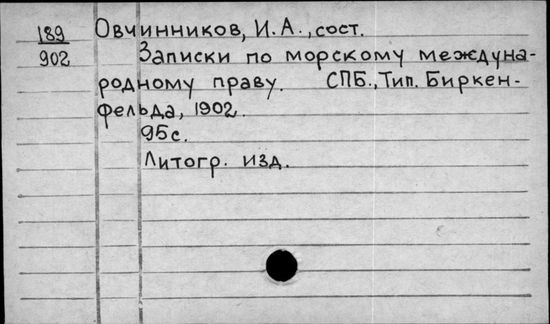 189 Овчинников, И.А., сост.
902 Записки по морскому междуна-
родному праву. СПБ., Тип. Биркен-
фельда, 1902.
95с.
Литогр. изд.